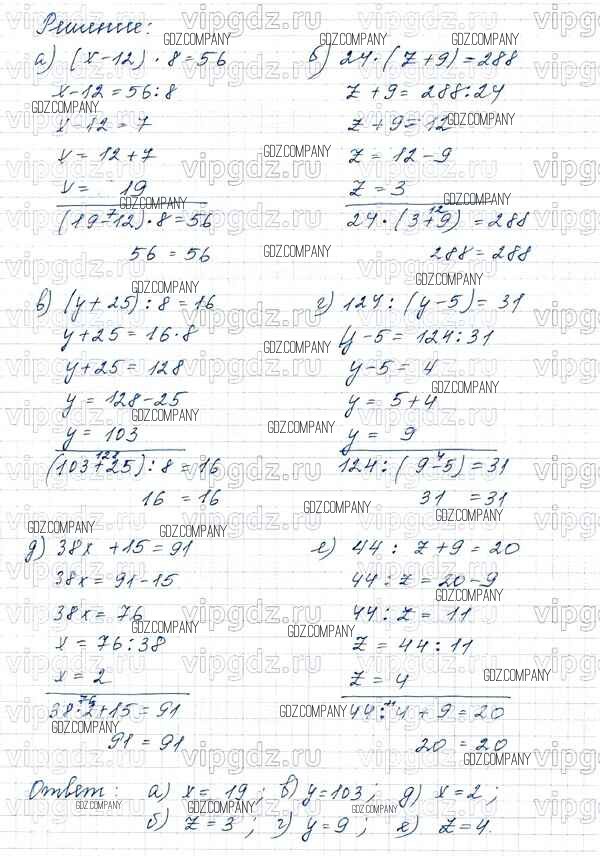 Решение:
а) (x-12) · 8 = 56
x-12 = 56:8
x-12 = 7
x = 12+7
x = 19
(19-12)·8 = 56
7
56 = 56
б) 24·(z+9) = 288
z+9 = 288:24
z+9 = 12
z = 12-9
z = 3
24·(3+9) = 288
12
288 = 288
в) (y+25):8 = 16
y+25 = 16·8
y+25 = 128
y = 128-25
y = 103
(103+25):8 = 16
128
16 = 16
г) 124:(y-5) = 31
y-5 = 124:31
y-5 = 4
y = 5+4
y = 9
124:(9-5) = 31
4
31 = 31
д) 38x +15 = 91
38x = 91-15
38x = 76
x = 76:38
x = 2
38·2+15 = 91
76
91 = 91
е) 44: z+9 = 20
44:z = 20-9
44:z = 11
z = 44:11
z = 4
44:4+9 = 20
11
20 = 20
Ответ: а) x = 19; в) y=103; д) x=2;
б) z = 3; г) y=9; е) z=4.
vipgdz.ru
GDZ.COMPANY